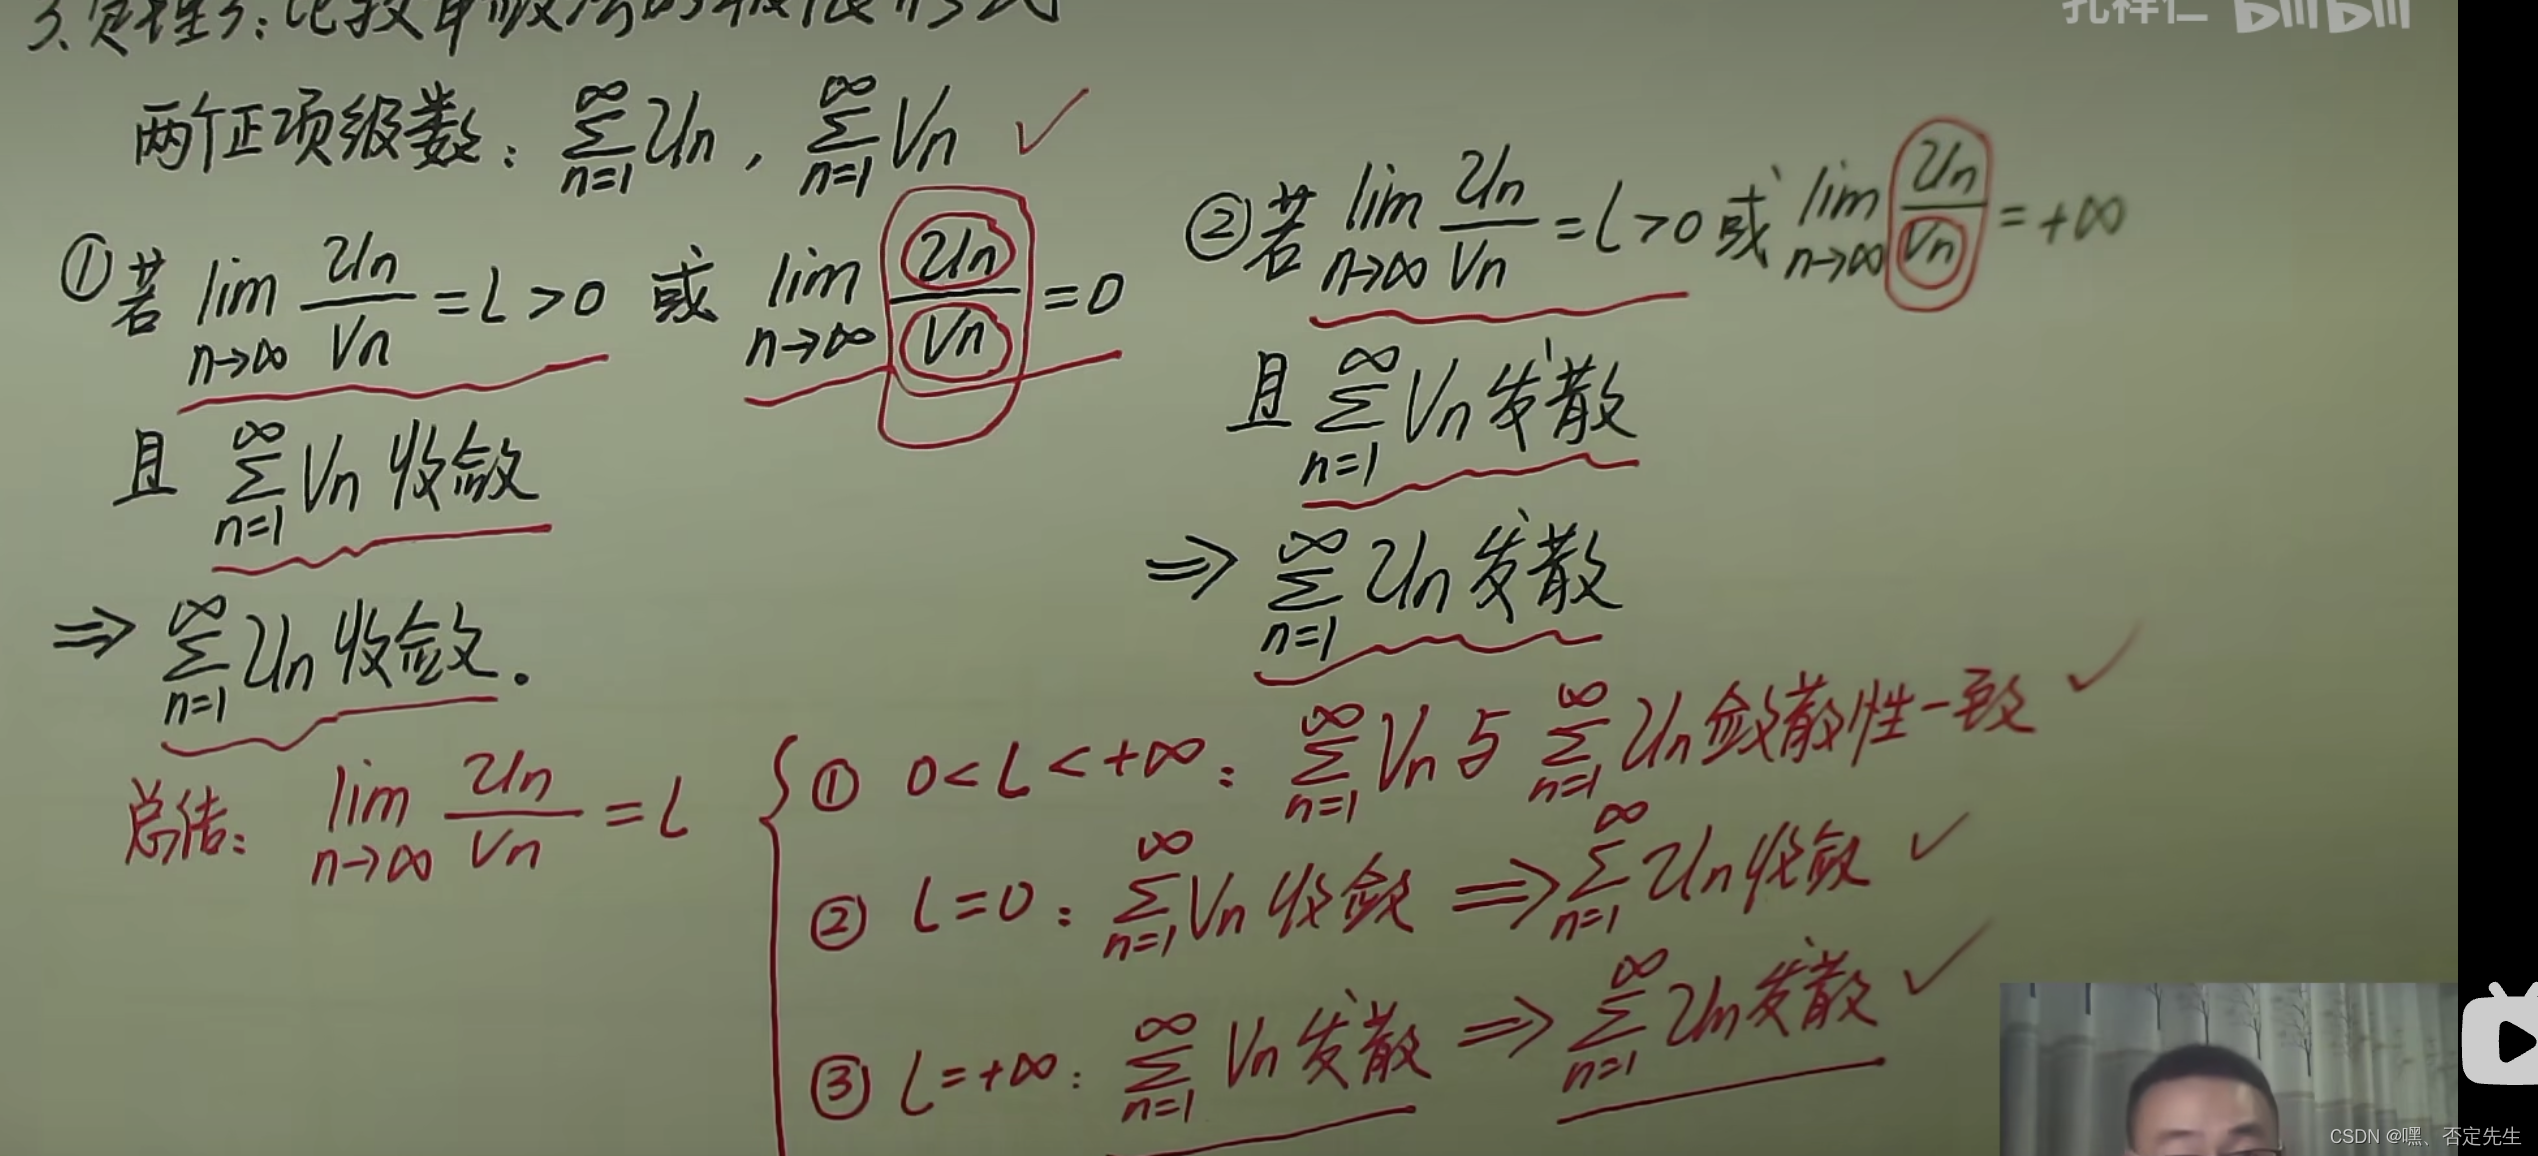 3、定理3：比较审敛法的极限形式
孔祥仁 bilibili
两个正项级数：∑_{n=1}^{∞} Un，∑_{n=1}^{∞} Vn ✓
①若 lim_{n→∞} Un/Vn = l > 0 或 lim_{n→∞} Un/Vn = 0
且 ∑_{n=1}^{∞} Vn 收敛
⇒ ∑_{n=1}^{∞} Un 收敛.
②若 lim_{n→∞} Un/Vn = l > 0 或 lim_{n→∞} Un/Vn = +∞
且 ∑_{n=1}^{∞} Vn 发散
⇒ ∑_{n=1}^{∞} Un 发散
总结: lim_{n→∞} Un/Vn = l
① 0 < l < +∞ : ∑_{n=1}^{∞} Vn 与 ∑_{n=1}^{∞} Un 敛散性一致 ✓
② l = 0 : ∑_{n=1}^{∞} Vn 收敛 ⇒ ∑_{n=1}^{∞} Un 收敛 ✓
③ l = +∞ : ∑_{n=1}^{∞} Vn 发散 ⇒ ∑_{n=1}^{∞} Un 发散 ✓
CSDN @嘿、否定先生